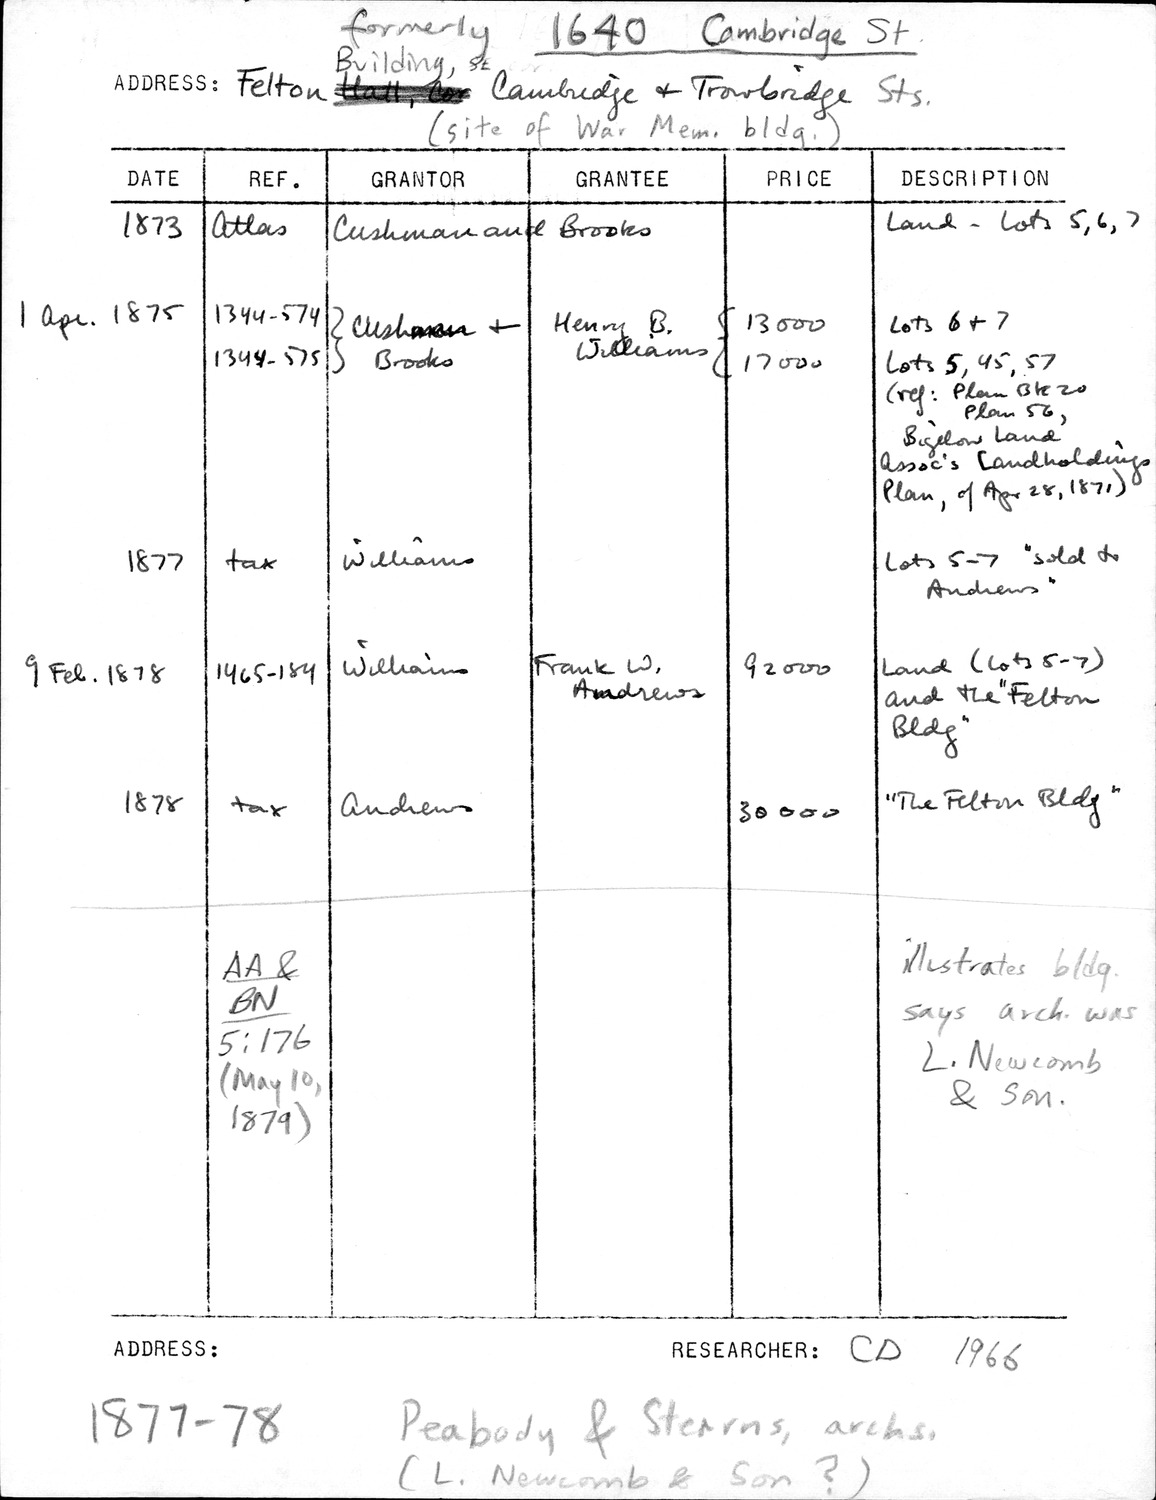 formerly 1640 Cambridge St.
Building, SE
ADDRESS: Felton Hall, Cor Cambridge + Trowbridge Sts.
(site of War Mem. bldg.)
DATE REF. GRANTOR GRANTEE PRICE DESCRIPTION
1873 Atlas Cushman and Brooks Land - Lots 5, 6, 7
1 Apr. 1875 1344-574 } Cushman + Henry B. { 13000 Lots 6 + 7
1344-575 } Brooks Williams { 17000 Lots 5, 45, 57
(ref: Plan Bk 20
Plan 56,
Bigelow Land
Assoc's Landholdings
Plan, of Apr 28, 1871)
1877 tax Williams Lots 5-7 "sold to
Andrews"
9 Feb. 1878 1465-184 Williams Frank W. 92000 Land (Lots 5-7)
Andrews and the "Felton
Bldg"
1878 tax Andrews 30000 "The Felton Bldg"
AA & illustrates bldg.
BN says arch. was
5:176 L. Newcomb
(May 10, & Son.
1879)
ADDRESS: RESEARCHER: CD 1966
1877-78 Peabody & Stearns, archs.
(L. Newcomb & Son ?)